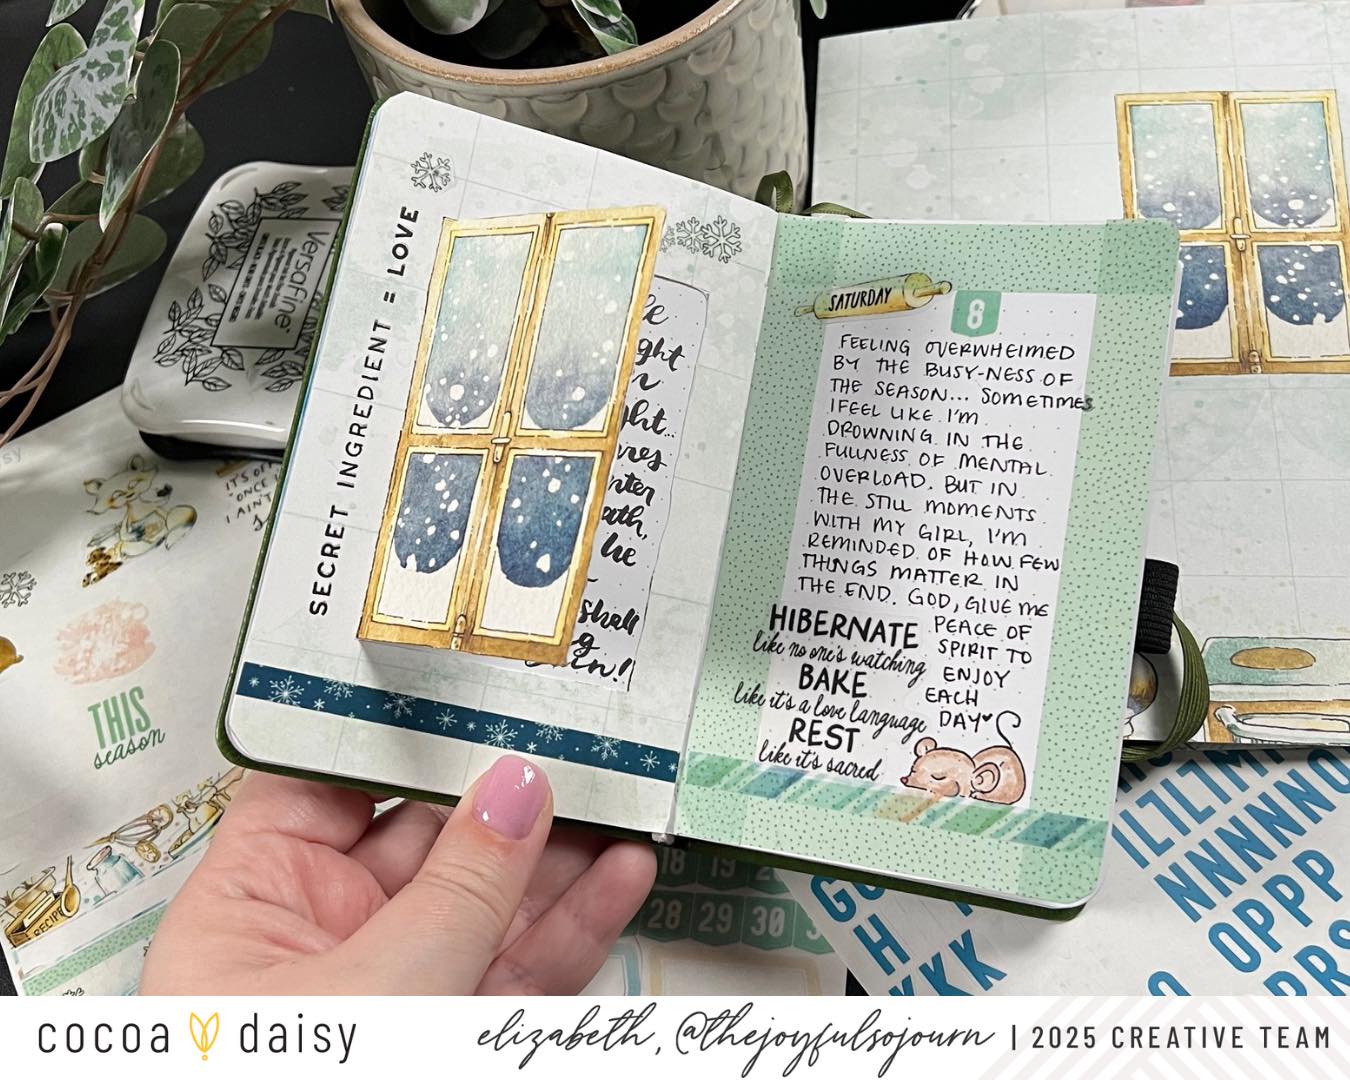 SECRET INGREDIENT = LOVE
ght
ght...
shall
SATURDAY
8
FEELING OVERWHELMED
BY THE BUSY-NESS OF
THE SEASON... SOMETIMES
I FEEL LIKE I'M
DROWNING IN THE
FULLNESS OF MENTAL
OVERLOAD. BUT IN
THE STILL MOMENTS
WITH MY GIRL, I'M
REMINDED OF HOW FEW
THINGS MATTER IN
THE END. GOD, GIVE ME
PEACE OF
SPIRIT TO
ENJOY
EACH
DAY♥
HIBERNATE
like no one's watching
BAKE
like it's a love language
REST
like it's sacred
Versafine
THIS
season
RECIPE
18 19 2
28 29 30 3
H
KKK
NNNNNO
OPPP
cocoa daisy
elizabeth, @thejoyfulsojourn | 2025 CREATIVE TEAM